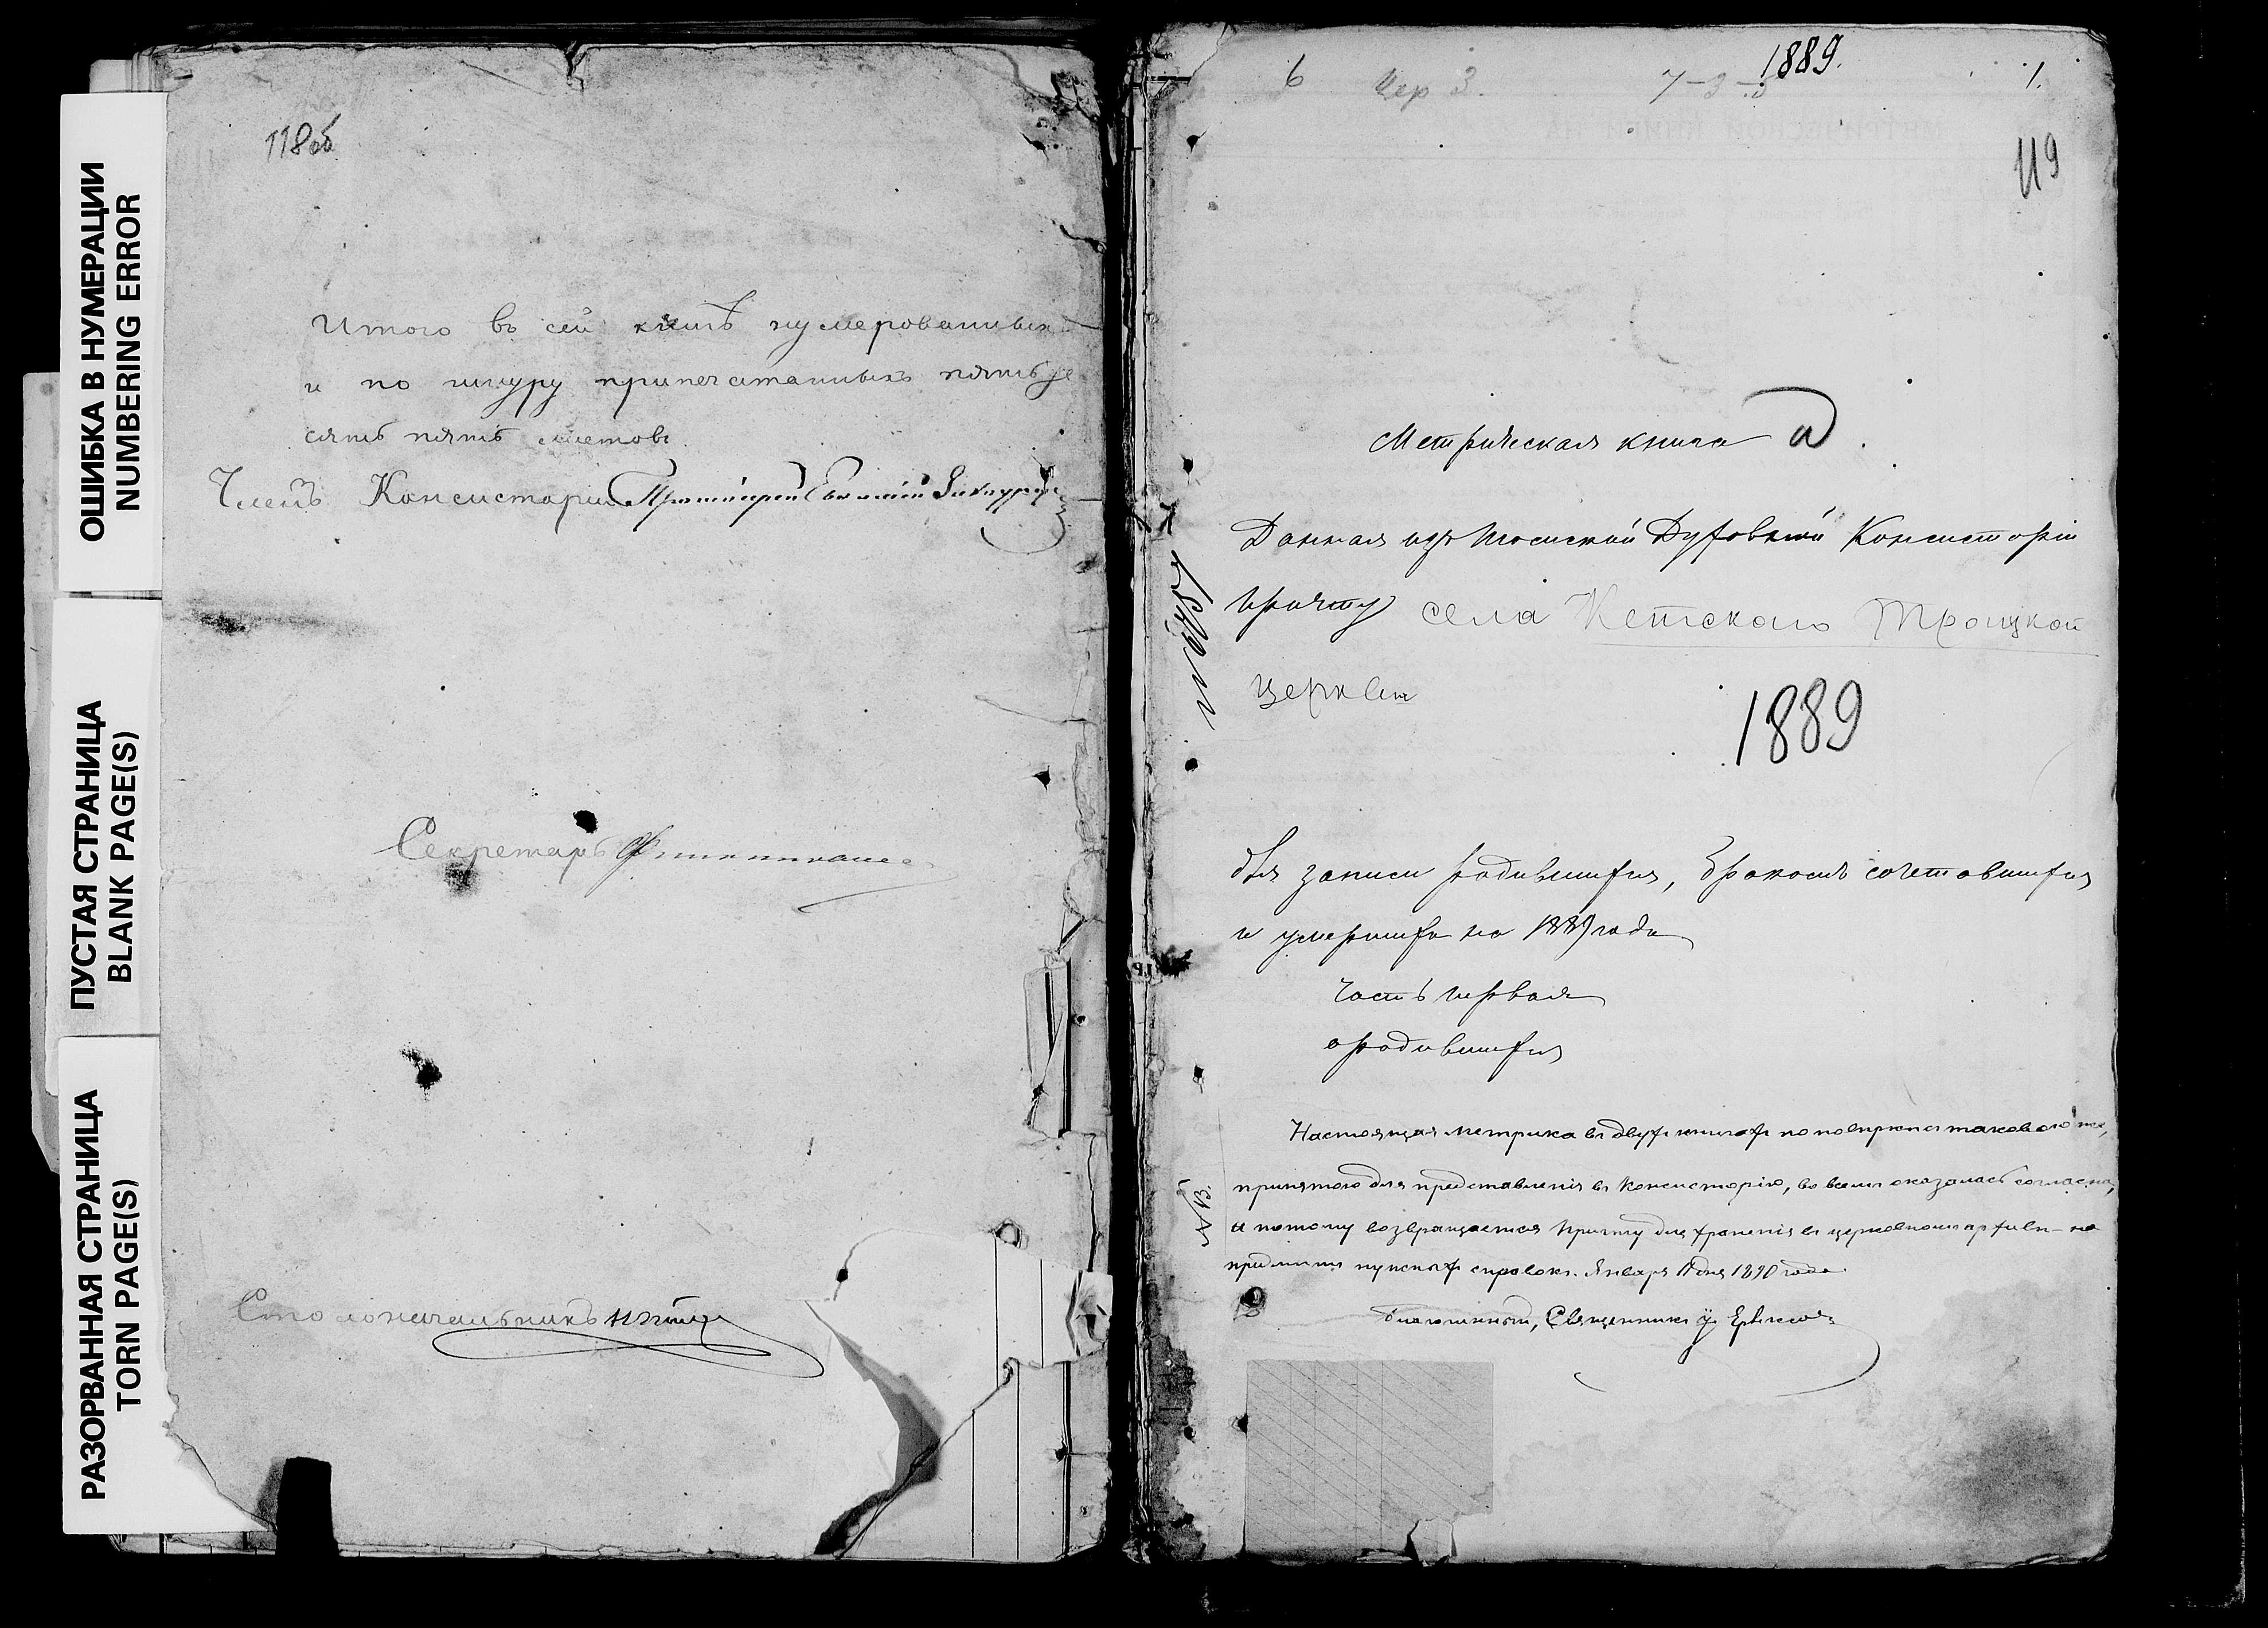 ОШИБКА В НУМЕРАЦИИ
NUMBERING ERROR
ПУСТАЯ СТРАНИЦА
BLANK PAGE(S)
РАЗОРВАННАЯ СТРАНИЦА
TORN PAGE(S)
118об
Итого въ сей книгѣ нумерованныхъ
и по шнуру припечатанныхъ пятьде
сятъ пять листовъ.
Членъ Консисторіи Протоіерей Евѳимій
Секретарь
Столоначальникъ
1889.
6 Чер 3. 1.
119
Метрическая книга
Данная изъ Томской Духовной Консисторіи
причту села Кетскаго Троицкой
церкви
1889
для записи родившихся, бракомъ сочетавшихся
и умершихъ на 1889 годъ
Часть первая
о родившихся
Настоящая метрика въ двухъ книгахъ по повѣркѣ таковаго же,
принятаго для представленія въ Консисторію, во всемъ оказалась согласна,
и потому возвращается причту для храненія въ церковномъ архивѣ на
предметъ нужныхъ справокъ. Января дня 1890 года.
Благочинный, Священникъ
NB.